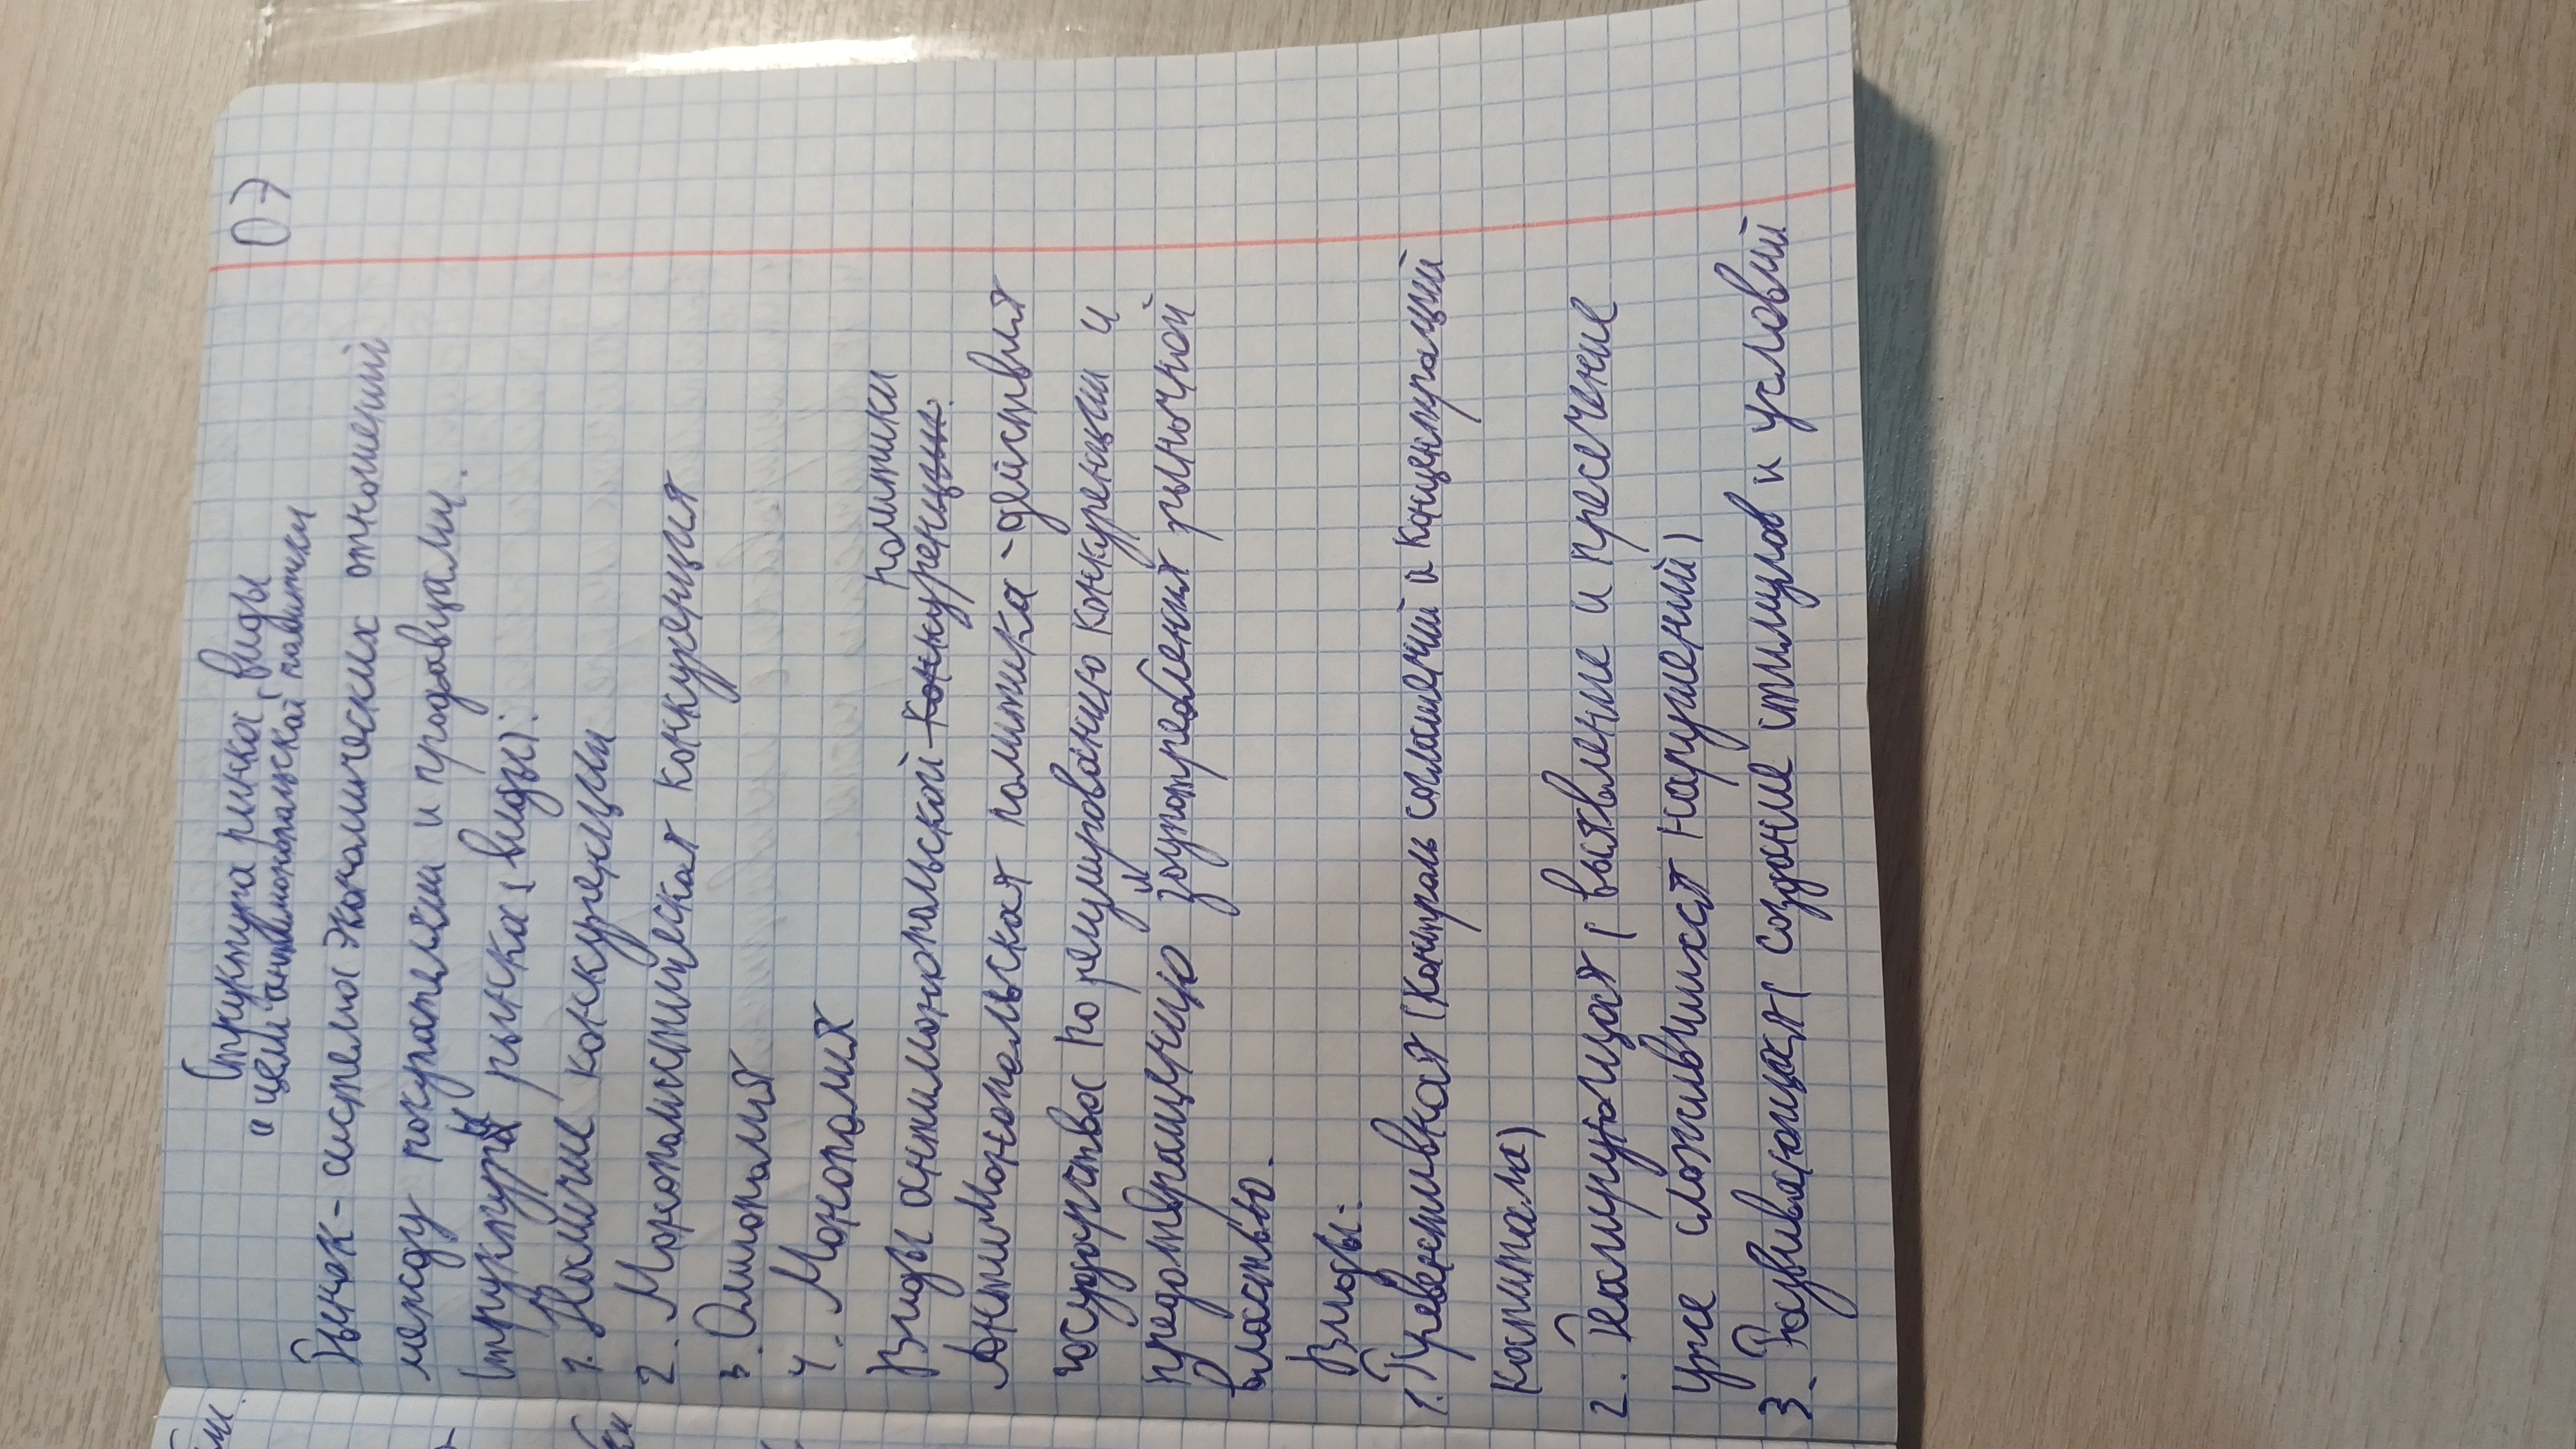 07
Структура рынка, виды
и цели антимонопольской политики
Рынок - система экономических отношений
между покупателями и продавцами.
Структуры рынка (виды):
1. Наличие конкуренции
2. Монополистическая конкуренция
3. Олигополия
4. Монополия
Виды антимонопольской конкуренции. политики
Антимонопольская политика - действия
государства по регулированию конкуренции и
предотвращению и злоупотребления рыночной
властью.
Виды:
1. Превентивная (Контроль соглашений и концентраций
капитала)
2. Реагирующая (выявление и пресечение
уже сложившихся нарушений)
3. Развивающая (создание стимулов и условий